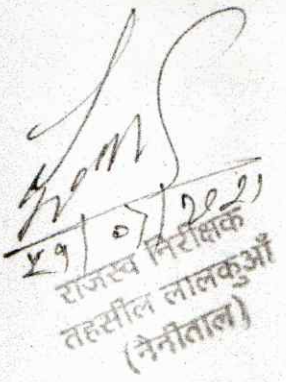 29/07/2021
राजस्व निरीक्षक
तहसील लालकुआँ
(नैनीताल)